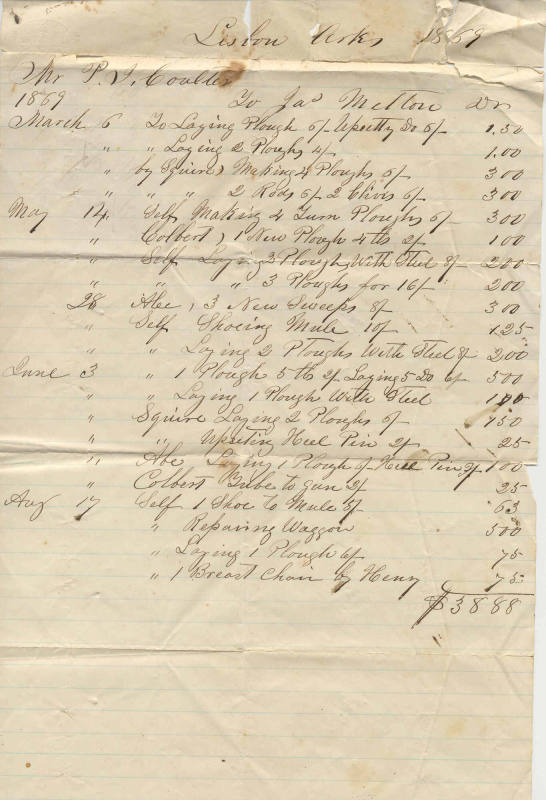 Lisbon Arks 1869
Mr P. J. Coulter
1869 To Jas Melton Dr
March 6 To Laying Plough 6/ Upsetty Do 6/ 1.50
" " Laying 2 Ploughs 4/ 1.00
" by Squire, Making 4 Ploughs 6/ 300
" " " " 2 Rods 6/ 2 Clivis 6/ 300
May 14 Self Making 4 Turn Ploughs 6/ 300
" Colbert, 1 New Plough 4 lbs 2/ 100
" Self Laying 2 Ploughs With Steel 8/ 200
" " " 3 Ploughs for 16/ 200
28 Abe, 3 New Sweeps 8/ 300
" Self Shoeing Mule 10/ 1.25
" " Laying 2 Ploughs With Steel 8/ 200
June 3 " 1 Plough 5 lbs 2/ Laying 5 Do 6/ 500
" " Laying 1 Plough With Steel 100
" Squire Laying 2 Ploughs 6/ 150
" " Upseting Heel Pin 2/ 25
" Abe Laying 1 Plough 6/ Heel Pin 2/ 100
" Colbert Tube to gun 2/ 25
Aug 17 Self 1 Shoe to Mule 5/ 63
" Repairing Waggon 500
" Laying 1 Plough 6/ 75
" 1 Breast Chain by Henry 75
$38 88